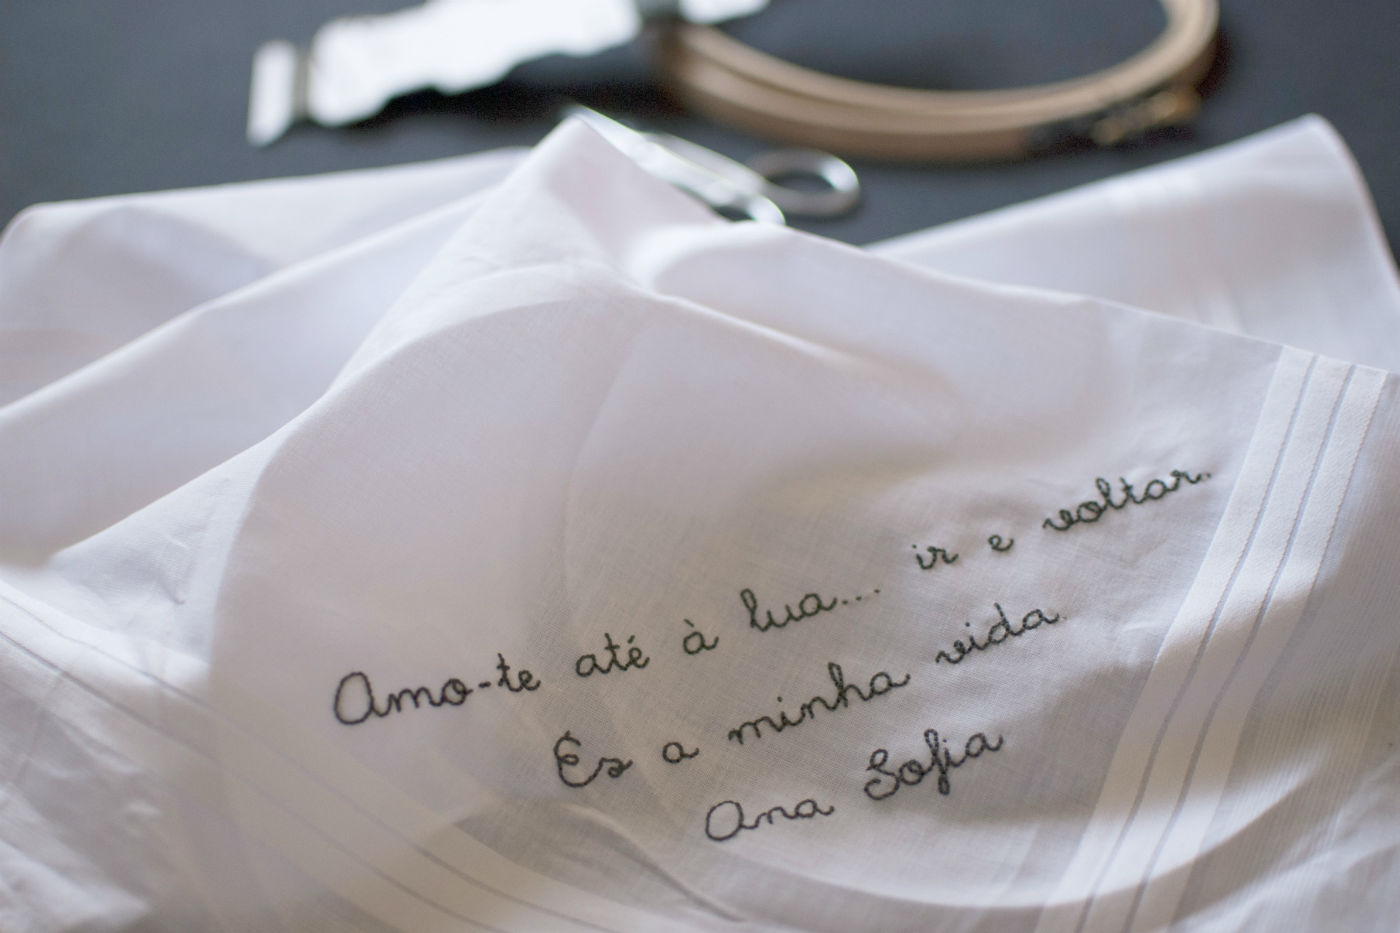 Amo-te até à lua... ir e voltar.
És a minha vida.
Ana Sofia